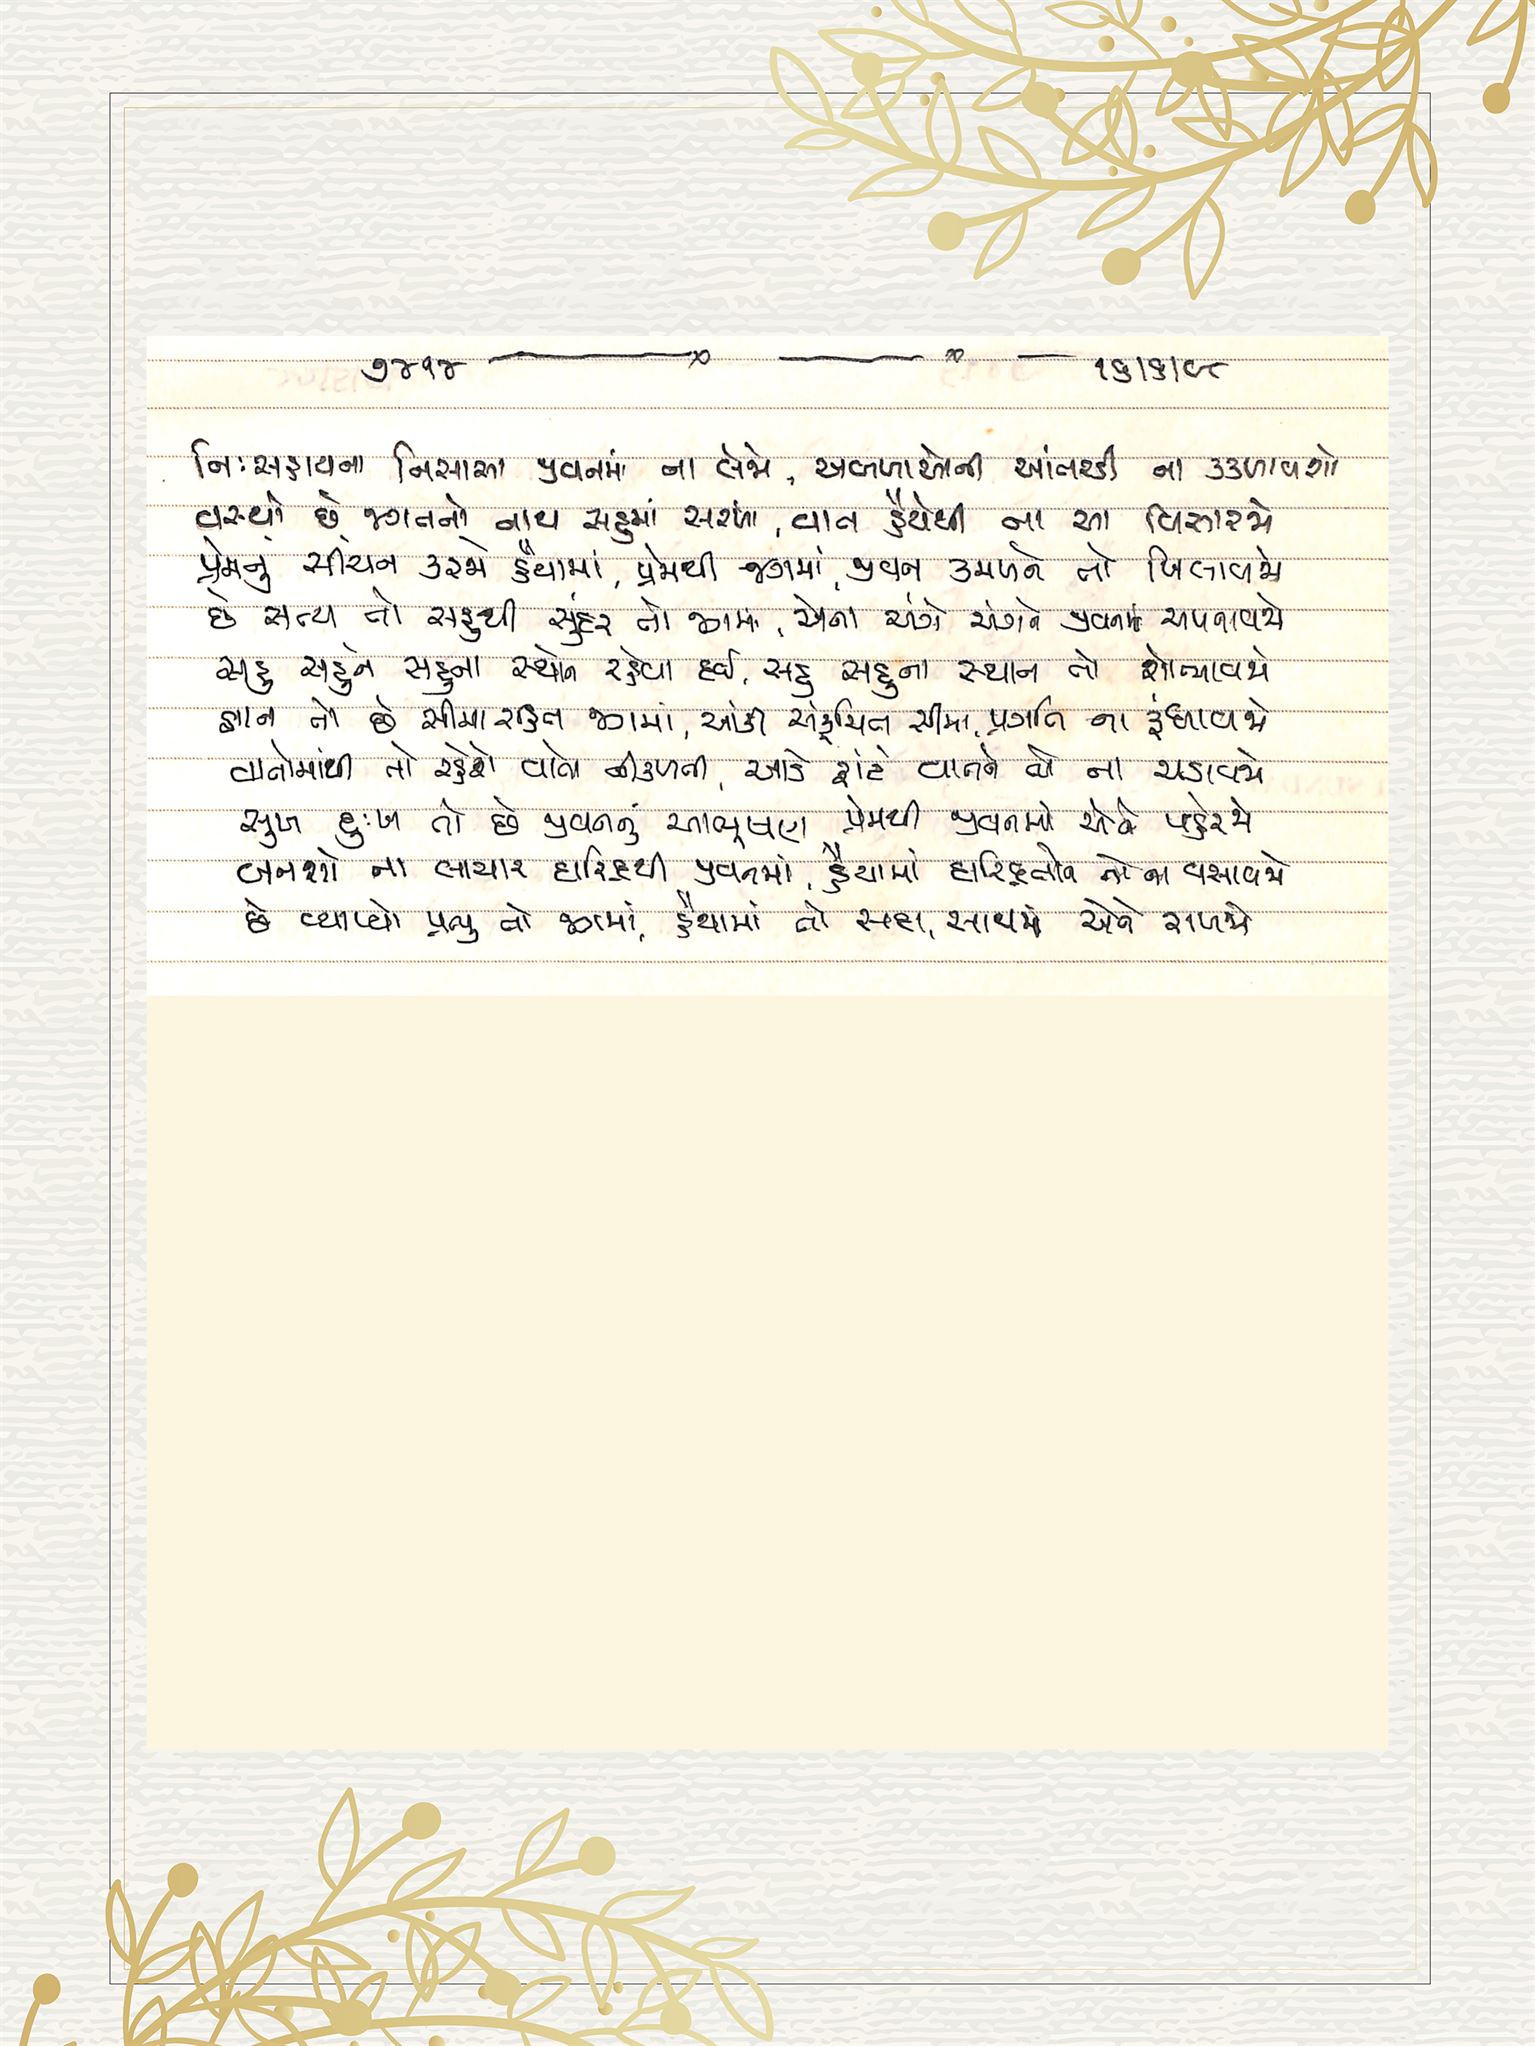 ૭૪૧૪ ૧૬/૬/૯૮
નિઃસહાયના નિસાસા જીવનમાં ના લેજો, અબળાઓની આંતરડી ના કકળાવશો
વસ્યો છે જગતનો નાથ સહુમાં સરખો, વાત હૈયેથી ના આ વિસારજો
પ્રેમનું સીંચન કરજો હૈયામાં, પ્રેમથી જગમાં, જીવન કમળને તો ખિલાવજો
છે સત્ય તો સહુથી સુંદર તો જગમાં, એના અંગે અંગને જીવનમાં અપનાવજો
સહુ સહુને સહુના સ્થાને રહેવા દઈ, સહુ સહુના સ્થાન તો શોભાવજો
જ્ઞાન તો છે સીમા રહિત જગમાં, આંકી સંકુચિત સીમા, પ્રગતિ ના રૂંધાવજો
વાતોમાંથી તો રહેશે વાતો નીકળતી, આડે ફાંટે વાતને તો ના ચડાવજો
સુખ દુઃખ તો છે જીવનનું આભૂષણ પ્રેમથી જીવનમાં એને પહેરજો
બનશો ના લાચાર દારિદ્રથી જીવનમાં, હૈયામાં દારિદ્રતાને તો ના વસાવજો
છે વ્યાપ્યો પ્રભુ તો જગમાં, હૈયામાં તો સદા, સાથમાં એને રાખજો